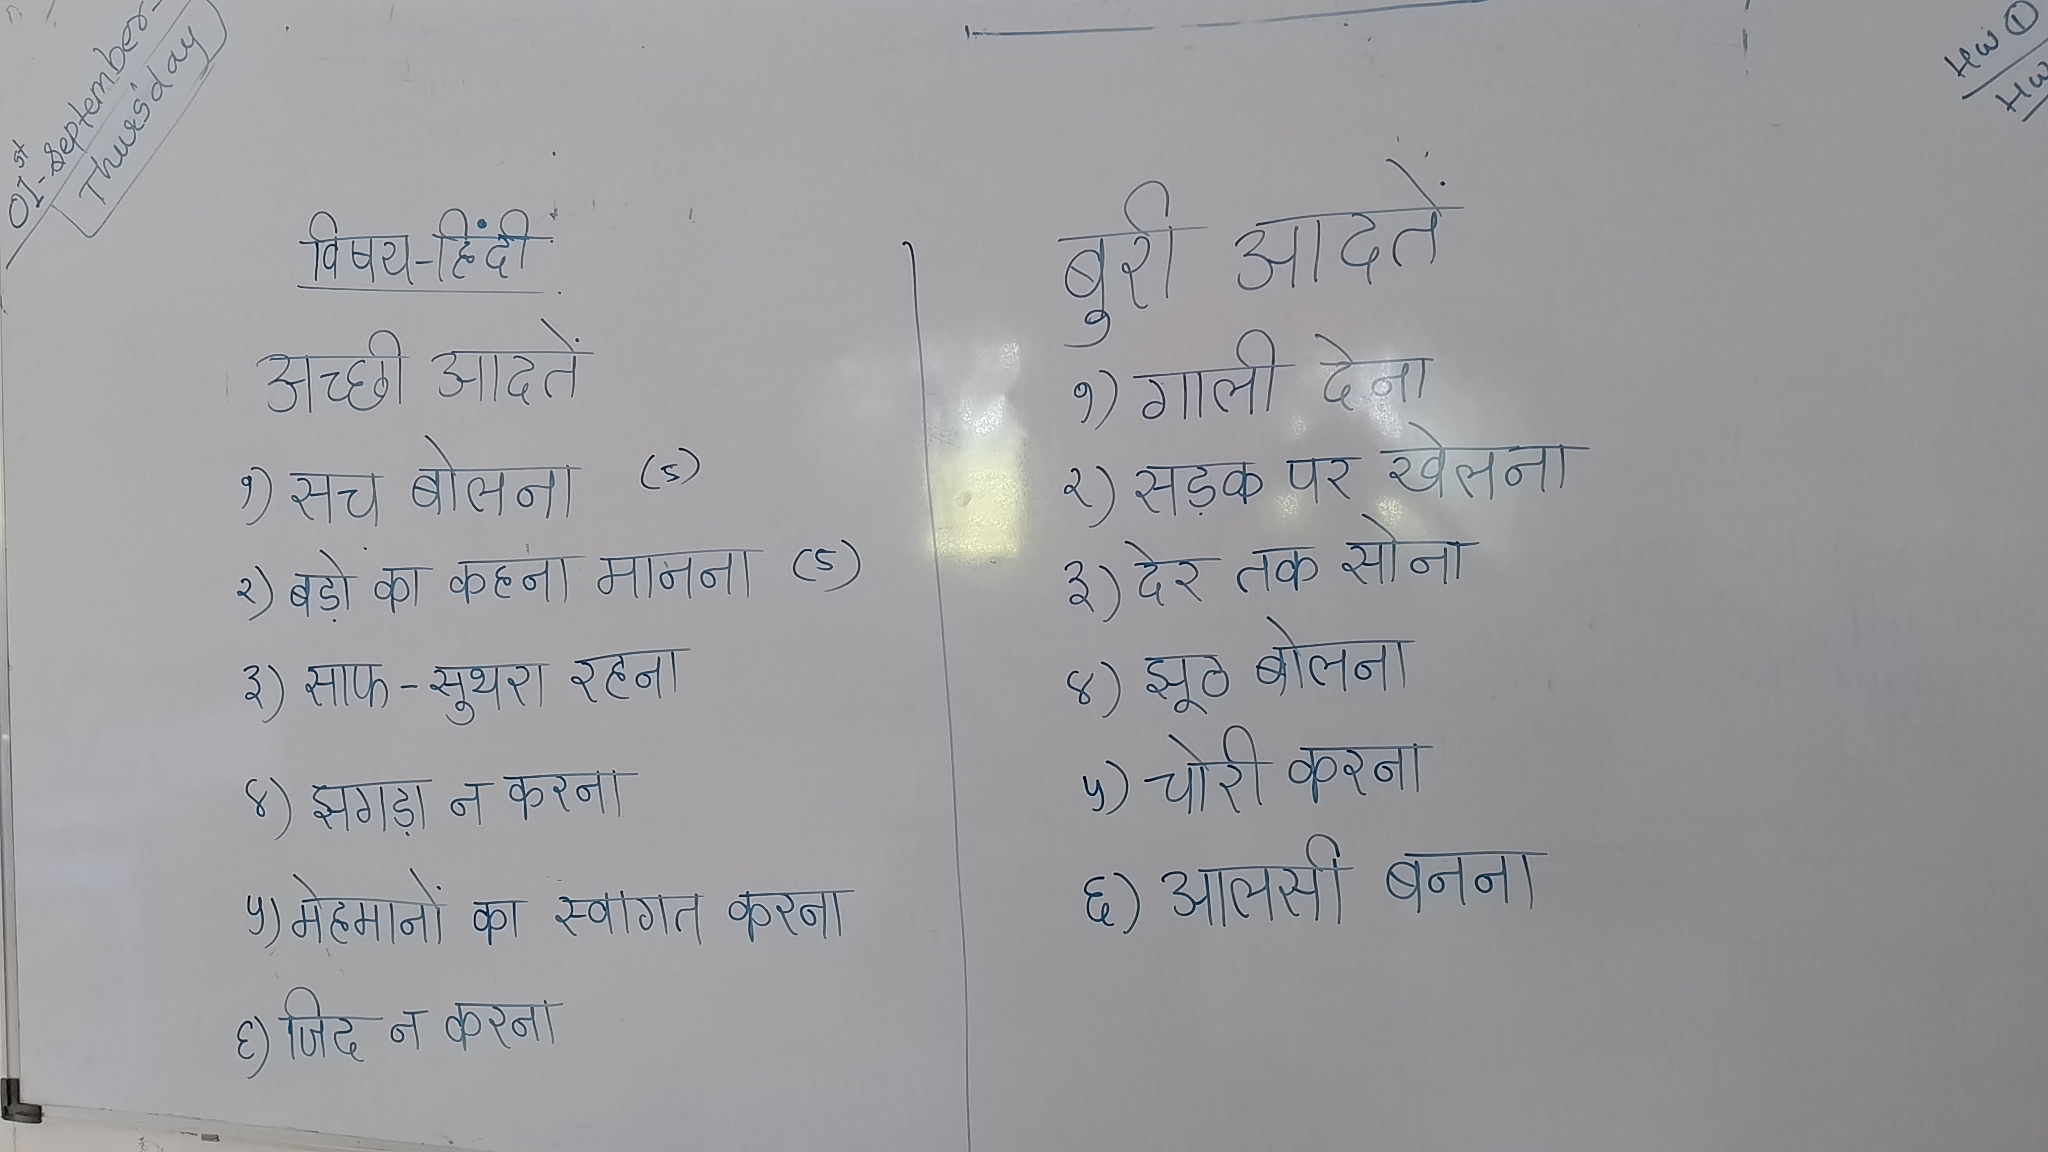 01st-September-
Thursday
HW ①
HW
विषय-हिंदी
अच्छी आदतें
१) सच बोलना (5)
२) बड़ो का कहना मानना (5)
३) साफ-सुथरा रहना
४) झगड़ा न करना
५) मेहमानों का स्वागत करना
६) जिद न करना
बुरी आदतें
१) गाली देना
२) सड़क पर खेलना
३) देर तक सोना
४) झूठ बोलना
५) चोरी करना
६) आलसी बनना